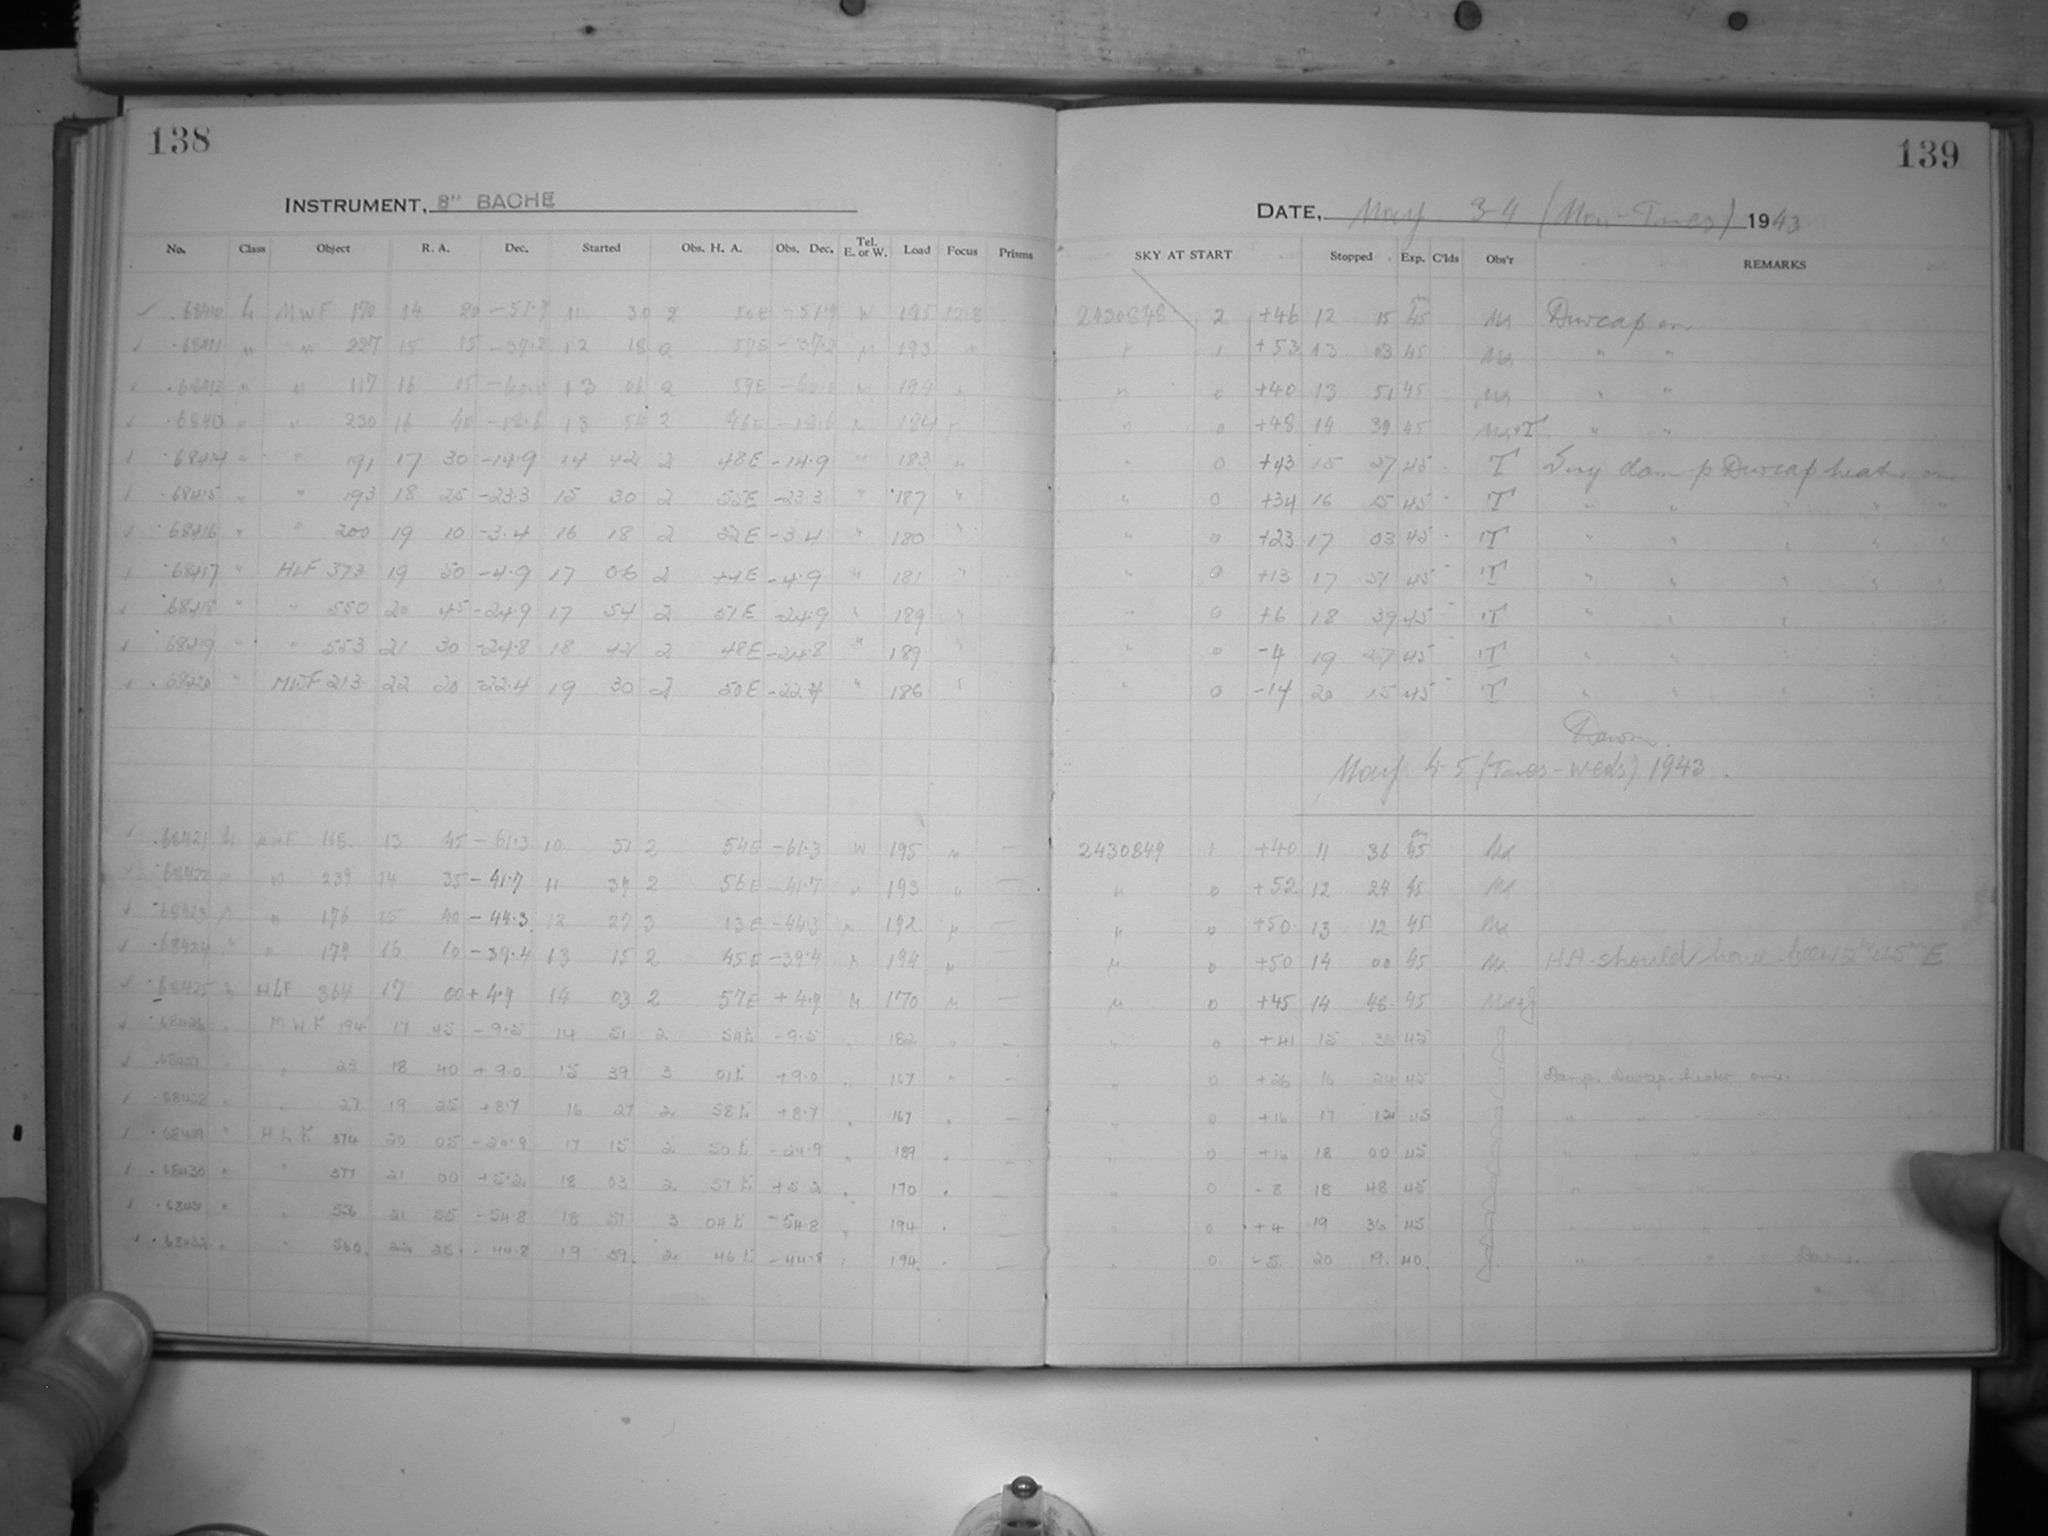 138
INSTRUMENT, 8" BACHE
No. Class Object R. A. Dec. Started Obs. H. A. Obs. Dec. Tel. E. or W. Load Focus Prisms
.68410 L MWF 170 14 20 -51.9 11 30 2 50E -51.9 W 195 12.8
.68411 " " 227 15 15 -37.2 12 18 2 57E -37.2 " 193 "
.68412 " " 117 16 05 -60.0 13 06 2 59E -60.0 " 194 "
.68413 " " 230 16 40 -18.6 13 54 2 46E -18.6 " 184 "
.68414 " " 191 17 30 -14.9 14 42 2 48E -14.9 " 183 "
.68415 " " 193 18 25 -23.3 15 30 2 55E -23.3 " 187 "
.68416 " " 200 19 10 -3.4 16 18 2 52E -3.4 " 180 "
.68417 " HLF 373 19 50 -4.9 17 06 2 44E -4.9 " 181 "
.68418 " " 550 20 45 -24.9 17 54 2 51E -24.9 " 189 "
.68419 " " 553 21 30 -24.8 18 42 2 48E -24.8 " 189 "
.68420 " MWF 213 22 20 -22.4 19 30 2 50E -22.4 " 186 "
.68421 13 45 -61.3 10 51 2 54E -61.3 W 195 " —
.68422 " " 239 14 35 -41.7 11 39 2 56E -41.7 " 193 " —
.68423 " " 176 15 40 -44.3 12 27 3 13E -44.3 " 192 " —
.68424 " " 179 16 10 -39.4 13 15 2 45E -39.4 " 194 " —
.68425 " HLF 364 17 00 +4.9 14 03 2 57E +4.9 " 170 " —
.68426 " MWF 194 17 45 -9.5 14 51 2 54E -9.5 " 182 " —
.68427 " 23 18 40 +9.0 15 39 3 01E +9.0 " 167 " —
.68428 " " 27 19 25 +8.7 16 27 2 58E +8.7 " 167 " —
.68429 " HLF 374 20 05 17 15 2 50E -24.9 " 189 " —
.68430 " " 377 21 00 +5.2 18 03 2 57E +5.2 " 170 " —
.68431 " " 556 21 55 -54.8 18 51 3 04E -54.8 " 194 " —
.68432 " " 560 22 25 -44.8 19 39 2 46E -44.8 " 194 " —
139
DATE, May 3-4 (Mon-Tues) 1943
SKY AT START Stopped Exp. C'lds Obs'r REMARKS
2430848 2 +46 12 15 45 Ma Dewcap on
" 1 +53 13 03 45 Ma " "
" 0 +40 13 51 45 Ma " "
" 0 +48 14 39 45 Ma+T " "
" 0 +43 15 27 45 T Very damp Dewcap heater on
" 0 +34 16 15 45 T " " " " "
" 0 +23 17 03 45 T " " " " "
" 0 +13 17 51 45 T " " " " "
" 0 +6 18 39 45 T " " " " "
" 0 -4 19 27 45 T " " " " "
" 0 -14 20 15 45 T " " " " "
Dawn.
May 4-5 (Tues-Weds) 1943.
2430849 1 +40 11 36 45 Ma
" 0 +52 12 24 45 Ma
" 0 +50 13 12 45 Ma
" 0 +50 14 00 45 Ma HA should have been 2 45 E
" 0 +45 14 48 45
" 0 +41 15 36 45
" 0 +26 16 24 45 Damp. Dewcap heater on.
" 0 +16 17 12 45 " " " "
" 0 +16 18 00 45 " " " "
" 0 -8 18 48 45 " " " "
" 0 +4 19 36 45 " " " "
" 0 -5 20 19 40 " " " " Dawn.